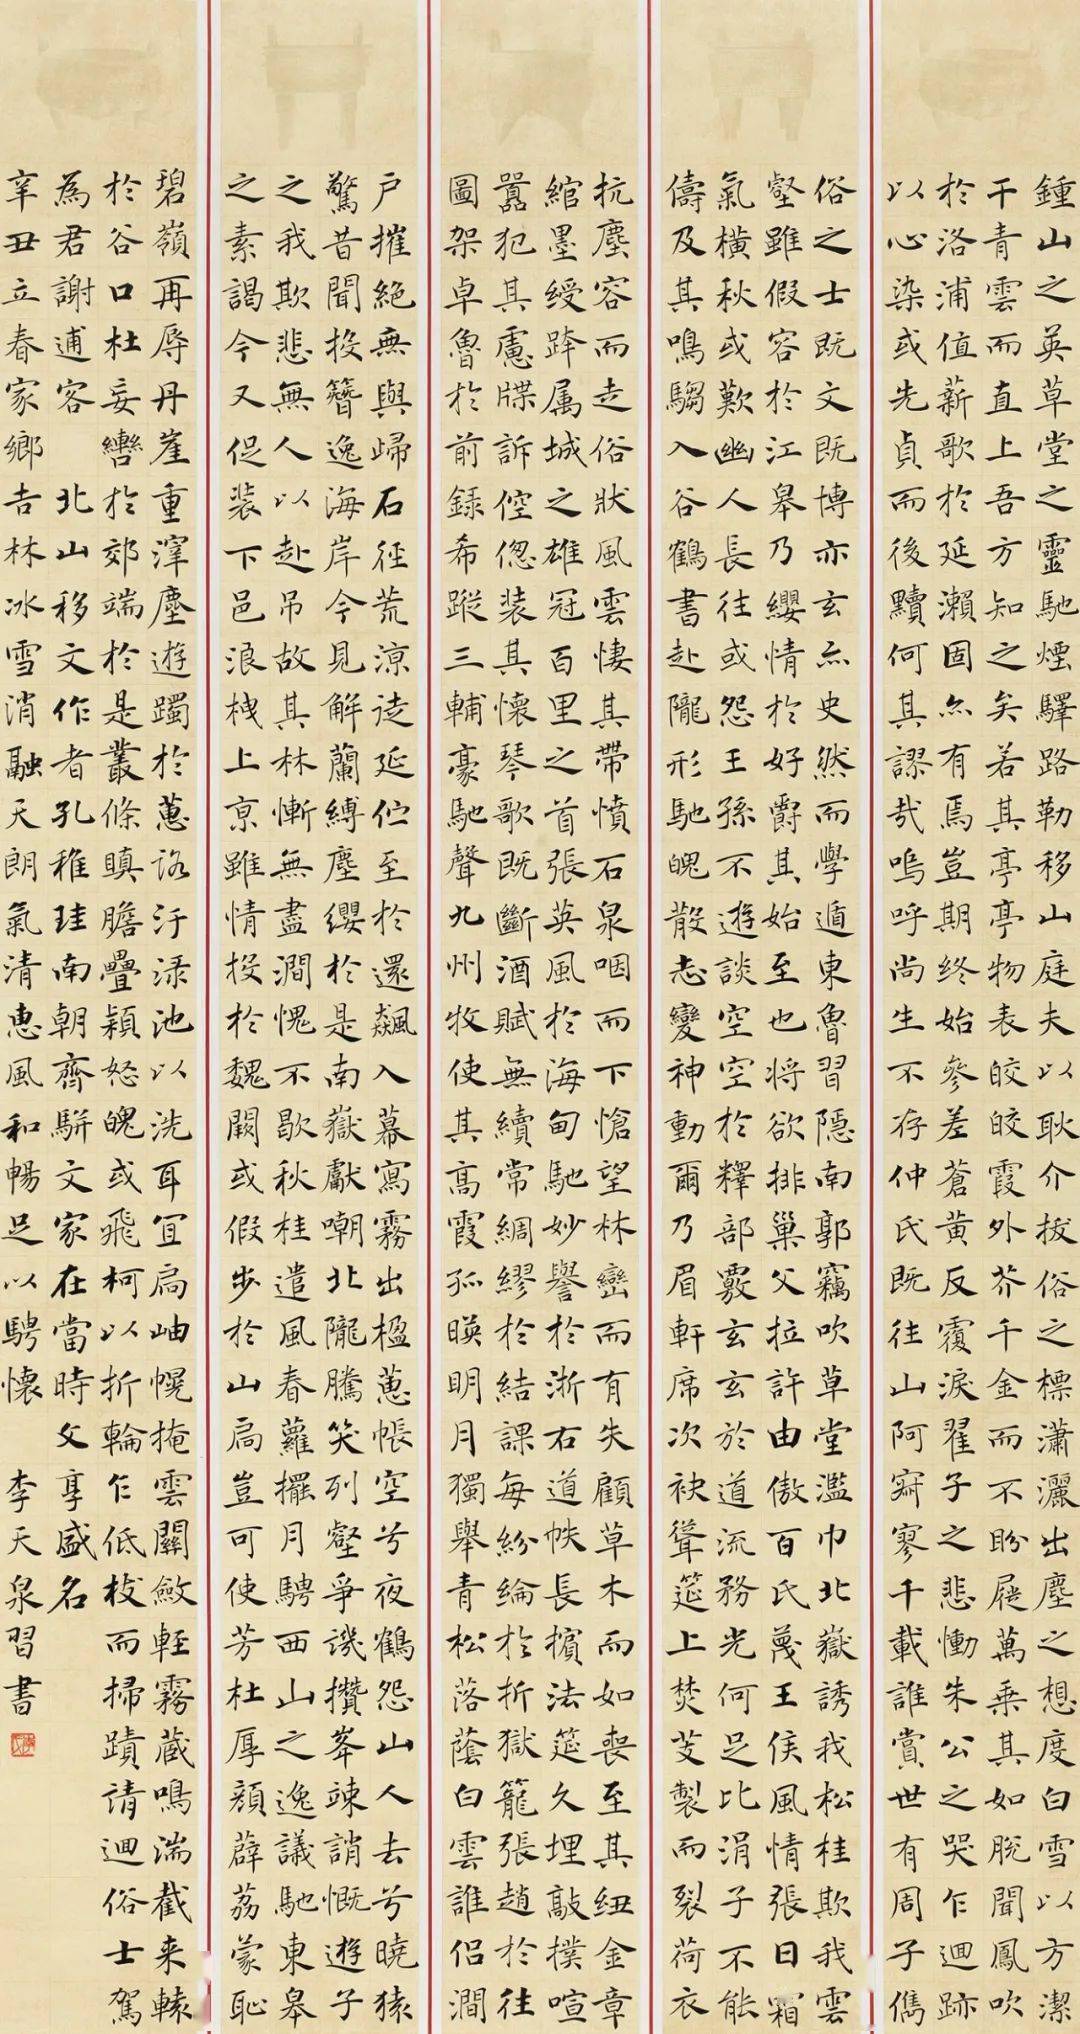 鍾山之英草堂之靈馳煙驛路勒移山庭夫以耿介拔俗之標瀟灑出塵之想度白雪以方潔
干青雲而直上吾方知之矣若其亭亭物表皎皎霞外芥千金而不盼屣萬乘其如脫聞鳳吹
於洛浦值薪歌於延瀨固亦有焉豈期終始參差蒼黃反覆淚翟子之悲慟朱公之哭乍迴跡
以心染或先貞而後黷何其謬哉嗚呼尚生不存仲氏既往山阿寂寥千載誰賞世有周子儁
俗之士既文既博亦玄亦史然而學遁東魯習隱南郭竊吹草堂濫巾北嶽誘我松桂欺我雲
壑雖假容於江皋乃纓情於好爵其始至也將欲排巢父拉許由傲百氏蔑王侯風情張日霜
氣橫秋或歎幽人長往或怨王孫不遊談空空於釋部覈玄玄於道流務光何足比涓子不能
儔及其鳴騶入谷鶴書赴隴形馳魄散志變神動爾乃眉軒席次袂聳筵上焚芰製而裂荷衣
抗塵容而走俗狀風雲悽其帶憤石泉咽而下愴望林巒而有失顧草木而如喪至其紐金章
綰墨綬跨属城之雄冠百里之首張英風於海甸馳妙譽於浙右道帙長擯法筵久埋敲撲喧
囂犯其慮牒訴倥傯装其懷琴歌既斷酒賦無續常綢繆於結課每紛綸於折獄籠張趙於往
圖架卓魯於前録希蹤三輔豪馳聲九州牧使其高霞孤暎明月獨舉青松落蔭白雲誰侶澗
户摧絶無與歸石徑荒涼徒延佇至於還飆入幕寫霧出楹蕙帳空兮夜鶴怨山人去兮曉猿
驚昔聞投簪逸海岸今見解蘭縛塵纓於是南嶽獻嘲北隴騰笑列壑爭譏攢峯竦誚慨遊子
之我欺悲無人以赴吊故其林慚無盡澗愧不歇秋桂遣風春蘿擺月騁西山之逸議馳東皋
之素謁今又促裝下邑浪栧上京雖情投於魏闕或假步於山扃豈可使芳杜厚顏薜荔蒙恥
碧嶺再辱丹崖重滓塵遊躅於蕙路汙渌池以洗耳宜扃岫幌掩雲關斂輕霧藏鳴湍截来轅
於谷口杜妄轡於郊端於是叢條瞋膽疊穎怒魄或飛柯以折輪乍低枝而掃蹟請迴俗士駕
為君謝逋客 北山移文作者孔稚珪南朝齊駢文家在當時文享盛名
辛丑立春家鄉吉林冰雪消融天朗氣清惠風和暢足以騁懷 李天泉習書